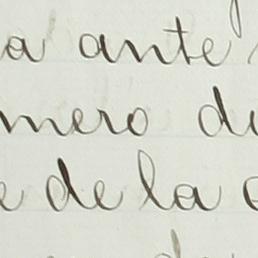 a ante
mero du
e de la a